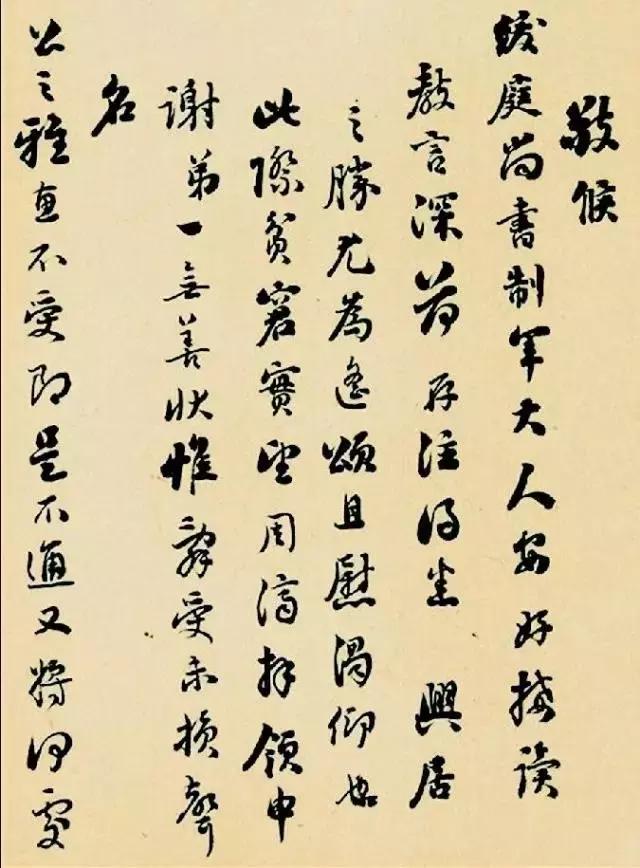 敬候
庭尚書制軍大人安好捧讀
教言深荷存注得悉 興居
之勝尤為遙頌且慰渴仰也
此際貧窘實望周濟拜領申
謝第一無善狀惟辭受未損聲
名
公之雅惠不受即是不通又將何處